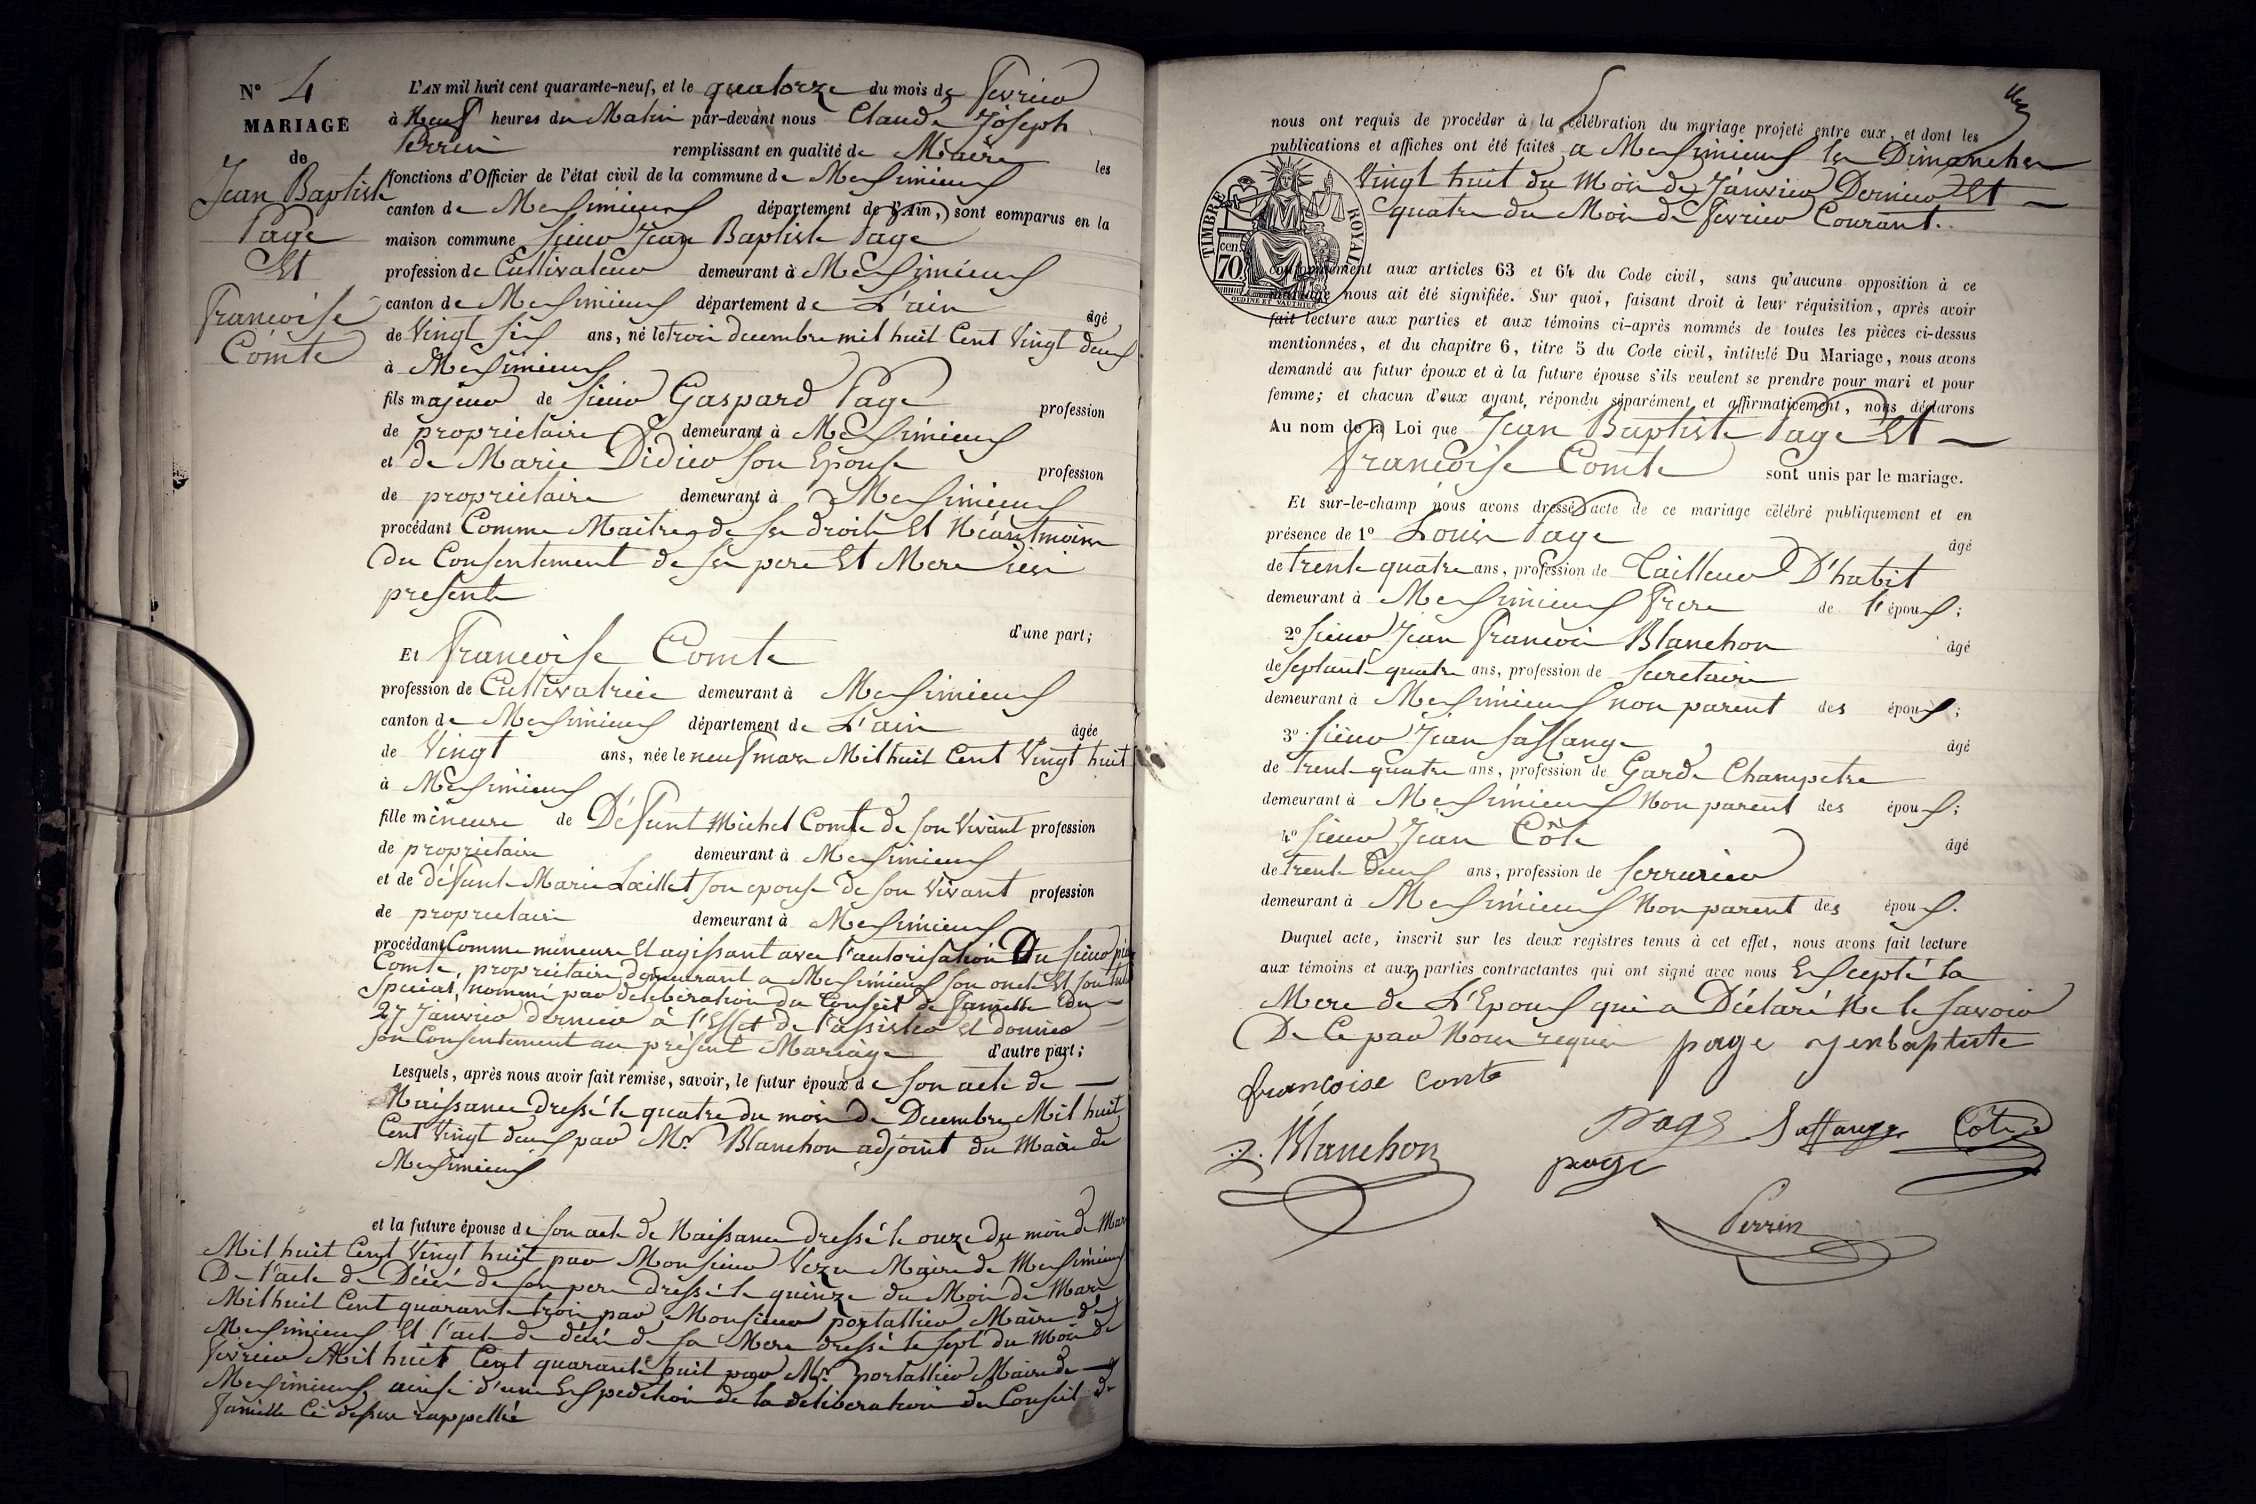 N° 4
MARIAGE
de
Jean Baptiste
Page
Et
Francoise
Comte
L'AN mil huit cent quarante-neuf, et le quatorze du mois de fevrier
à Neuf heures du Matin par-devant nous Claude Joseph
Perrin remplissant en qualité de Maire les
fonctions d'Officier de l'état civil de la commune de Messimieux
canton de Messimieux département de l'Ain, sont comparus en la
maison commune sieur Jean Baptiste Page
profession de Cultivateur demeurant à Messimieux
canton de Messimieux département de L'ain âgé
de Vingt six ans, né le trois decembre mil huit Cent Vingt deux
à Messimieux
fils majeur de sieur Gaspard Page profession
de proprietaire demeurant à Messimieux
et de Marie Didier son Epouse profession
de proprietaire demeurant à Messimieux
procédant Comme Maitre de ses droits Et Néanmoins
Du Consentement de ses pere Et Mere ici
present
d'une part;
Et Francoise Comte
profession de Cultivatrice demeurant à Messimieux
canton de Messimieux département de L'ain âgée
de Vingt ans, née le neuf mars Mil huit Cent Vingt huit
à Messimieux
fille mineure de Défunt Michel Comte de son Vivant profession
de proprietaire demeurant à Messimieux
et de défunte Marie Laillet son epouse de son Vivant profession
de proprietaire demeurant à Messimieux
procédant Comme mineure Et agissant avec l'autorisation Du sieur
Comte, proprietaire demeurant a Messimieux son oncle Et son
Special, nommé par deliberation du Conseil de famille du
27 Janvier dernier à l'Effet de l'assister et donner
son Consentement au présent Mariage d'autre part;
Lesquels, après nous avoir fait remise, savoir, le futur époux de son acte de
Naissance dressé le quatre du mois de Decembre Mil huit
Cent Vingt deux par Mr. Blanchon adjoint du Maire de
Messimieux
et la future épouse de son acte de Naissance dressé le onze du mois de Mars
Mil huit Cent Vingt huit par Monsieur Maire de Messimieux
De l'acte de Décès de son pere dressé le quinze du Mois de Mars
Mil huit Cent quarante trois par Monsieur portallier Maire de
Messimieux Et l'acte de décès de sa Mere dressé le sept du Mois de
fevrier Mil huit Cent quarante huit par Mr. portallier Maire de
Messimieux, ainsi d'une Expedition de la deliberation du Conseil de
famille Ci dessus rappellée
nous ont requis de procéder à la célébration du mariage projeté entre eux, et dont les
publications et affiches ont été faites a Messimieux les Dimanches
Vingt huit du Mois de Janvier Dernier Et
quatre du Mois de fevrier Courant.
TIMBRE ROYAL
cen. 70
OUDINÉ ET VAUTHIER
conformément aux articles 63 et 64 du Code civil, sans qu'aucune opposition à ce
mariage nous ait été signifiée. Sur quoi, faisant droit à leur réquisition, après avoir
fait lecture aux parties et aux témoins ci-après nommés de toutes les pièces ci-dessus
mentionnées, et du chapitre 6, titre 5 du Code civil, intitulé Du Mariage, nous avons
demandé au futur époux et à la future épouse s'ils veulent se prendre pour mari et pour
femme; et chacun d'eux ayant répondu séparément et affirmativement, nous déclarons
Au nom de la Loi que Jean Baptiste Page Et
Francoise Comte sont unis par le mariage.
Et sur-le-champ nous avons dressé acte de ce mariage célébré publiquement et en
présence de 1° Louis Page âgé
de trente quatre ans, profession de Tailleur D'habit
demeurant à Messimieux frere de l'époux;
2° sieur Jean Francois Blanchon âgé
de septante quatre ans, profession de secretaire
demeurant à Messimieux non parent des époux;
3° sieur Jean Saffange âgé
de trente quatre ans, profession de Garde Champetre
demeurant à Messimieux Non parent des époux;
4° sieur Jean Côte âgé
de trente deux ans, profession de Serrurier
demeurant à Messimieux Non parent des époux.
Duquel acte, inscrit sur les deux registres tenus à cet effet, nous avons fait lecture
aux témoins et aux parties contractantes qui ont signé avec nous Excepté la
Mere de L'Epoux qui a Déclaré Ne le savoir
De Ce par Nous requis page jenbaptiste
francoise conte
Blanchon page Saffange Côte
page
Perrin